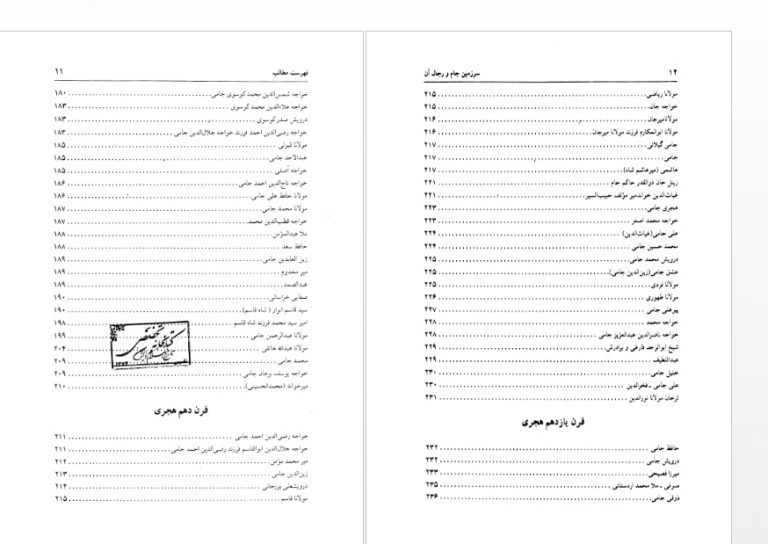 فهرست مطالب ۱۱
خواجه شمس‌الدین محمد کوسوی جامی ۱۸۰
خواجه علاءالدین محمد کوسوی ۱۸۳
درویش صدر کوسوی ۱۸۳
خواجه رضی‌الدین احمد فرزند خواجه جلال‌الدین جامی ۱۸۳
مولانا قبولی ۱۸۵
عبدالاحد جامی ۱۸۵
خواجه آصفی ۱۸۵
خواجه تاج‌الدین احمد جامی ۱۸۶
مولانا حافظ علی جامی ۱۸۶
مولانا محمد جامی ۱۸۷
خواجه قطب‌الدین محمد ۱۸۷
ملا عبدالمؤمن ۱۸۸
حافظ سعد ۱۸۸
زین العابدین جامی ۱۸۹
میر مخدوم ۱۸۹
عبدالصمد ۱۸۹
صفایی خراسانی ۱۹۰
سید قاسم انوار (شاه قاسم) ۱۹۰
امیر سید محمد فرزند شاه قاسم ۱۹۸
مولانا عبدالرحمن جامی ۱۹۹
مولانا عبدالله هاتفی ۲۰۴
محمد جامی ۲۰۹
خواجه یوسف برهان جامی ۲۰۹
میرخواند (محمدالحسینی) ۲۱۰
قرن دهم هجری
خواجه رضی‌الدین احمد جامی ۲۱۱
خواجه جلال‌الدین ابوالقاسم فرزند رضی‌الدین احمد جامی ۲۱۱
میر محمد مؤمن ۲۱۲
زین‌الدین جامی ۲۱۳
درویشعلی بورجانی ۲۱۴
مولانا قاسم ۲۱۵
کتابخانه تخصصی
۱۲ سرزمین جام و رجال آن
مولانا ریاضی ۲۱۵
خواجه جان ۲۱۵
مولانامیرجان ۲۱۶
مولانا ابوالمکارم فرزند مولانا میرجان ۲۱۶
جامی گیلانی ۲۱۷
جامی ۲۱۷
هاشمی (میرهاشم شاه) ۲۱۷
زینل خان ذوالقدر حاکم جام ۲۲۱
غیاث‌الدین خواندمیر مؤلف حبیب‌السیر ۲۲۱
هجری جامی ۲۲۳
خواجه محمد اصغر ۲۲۳
علی جامی (غیاث‌الدین) ۲۲۴
محمد حسین جامی ۲۲۴
درویش محمد جامی ۲۲۵
عشق جامی (زین‌الدین جامی) ۲۲۵
مولانا فردی ۲۲۵
مولانا ظهوری ۲۲۶
پیرعلی جامی ۲۲۷
خواجه محمد ۲۲۸
خواجه ناصرالدین عبدالعزیز جامی ۲۲۸
شیخ ابوالوجد فارغی و برادرش ۲۲۹
عبداللطیف ۲۲۹
خلیل جامی ۲۳۰
علی جامی ـ فخرالدین ۲۳۰
ترخان مولانا نورالدین ۲۳۱
قرن یازدهم هجری
حافظ جامی ۲۳۲
درویش جامی ۲۳۲
میرزا فصیحی ۲۳۳
صرفی ـ ملا محمد اردستانی ۲۳۵
ذوقی جامی ۲۳۶